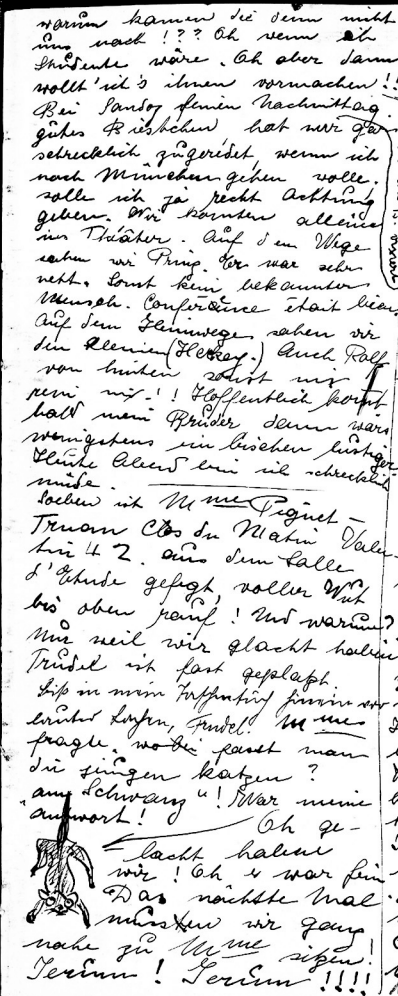 warum kamen sie denn nicht
uns nach!?? Oh wenn ich
Studente wäre. Oh aber dann
wollt' ich's ihnen vormachen!!
Bei Sandoz feinen Nachmittag.
gutes Biestchen, hat mir gar
schrecklich zugeredet, wenn ich
nach München gehen wolle,
solle ich ja recht Achtung
geben. Wir konnten alleine
ins Théater. Auf dem Wege
sahen wir Pring. Er war sehr
nett. Sonst kein bekannter
Mensch. Conférence était bien,
Auf dem Heimwege sahen wir
den Kleinen Auch Rolf
von hinten sonst nix
rein nix!! Hoffentlich kommt
bald mein Bruder dann wärs
wenigstens ein bischen lustiger
Heute Abend bin ich schrecklich
müde.
Soeben ist Mme Piguet-
Truan Clos du Matin Valen-
tin 42. aus dem Salle
d'Etude gefegt, voller Wut
bis oben rauf! Und warum?
Nur weil wir glacht haben
Trudel ist fast geplatzt
biß in mein hinein vor
lauter Lachen, Trudel. Mme
fragte, wobei passt man
die jungen katzen?
"am Schwanz"! War meine
antwort!
Oh ge-
lacht haben
wir! Oh es war fein
Das nächste Mal
müssen wir ganz
nahe zu Mme sitzen!
Jerum! Jerum!!!!